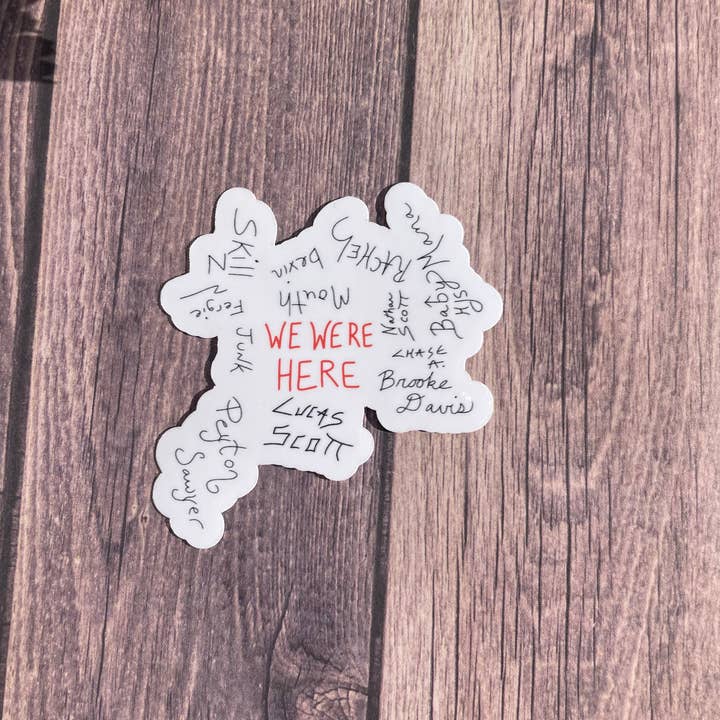 Skill
Z
Fergie
Junk
Mouth
bevin
RACHEL
Nathan
SCOTT
Baby
CHASE
A.
Brooke
Davis
WE WERE
HERE
LUCAS
SCOTT
Peyton
Sawyer